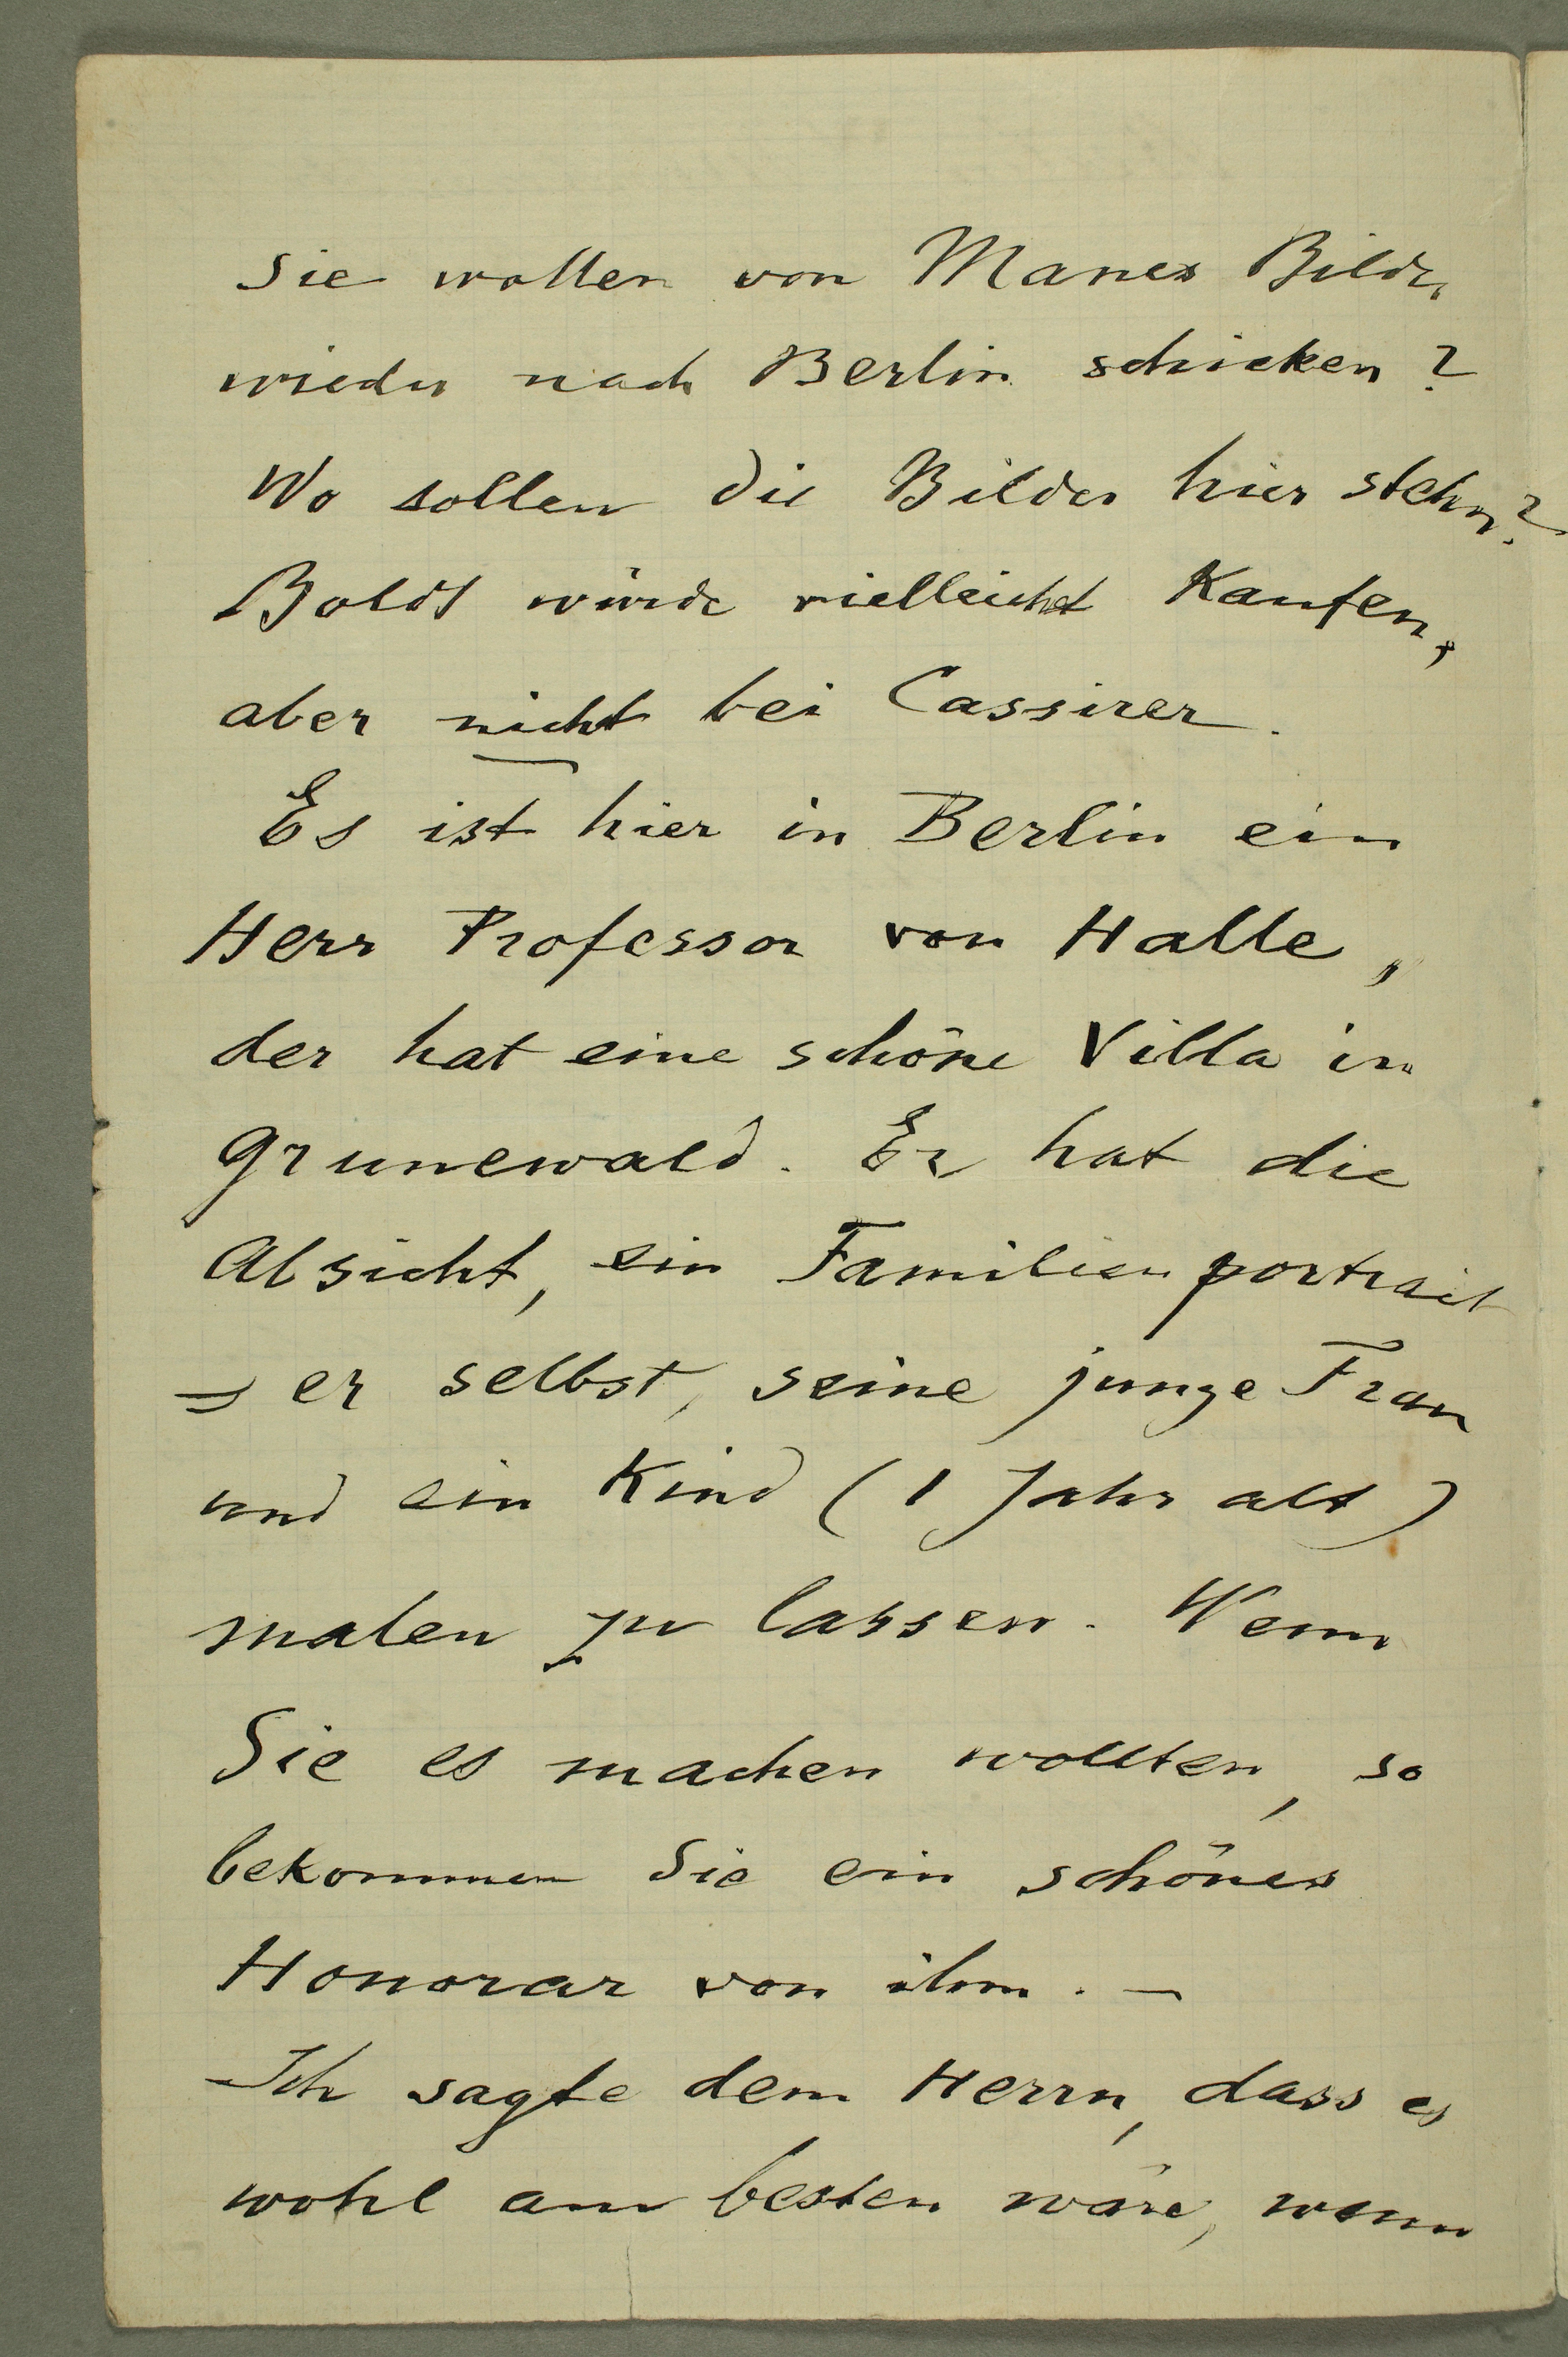 Sie wollen von Manes Bilder
wieder nach Berlin schicken?
Wo sollen die Bilder hier stehn?
Boldt würde vielleicht Kaufen,
aber nicht bei Cassirer.
Es ist hier in Berlin ein
Herr Professor von Halle,
der hat eine schöne Villa in
Grunewald. Er hat die
Absicht, ein Familienportrait
= er selbst, seine junge Frau
und ein Kind (1 Jahr alt)
malen zu lassen. Wenn
Sie es machen wollten, so
bekommen Sie ein schönes
Honorar von ihm. –
Ich sagte dem Herrn, dass es
wohl am besten wäre, wenn